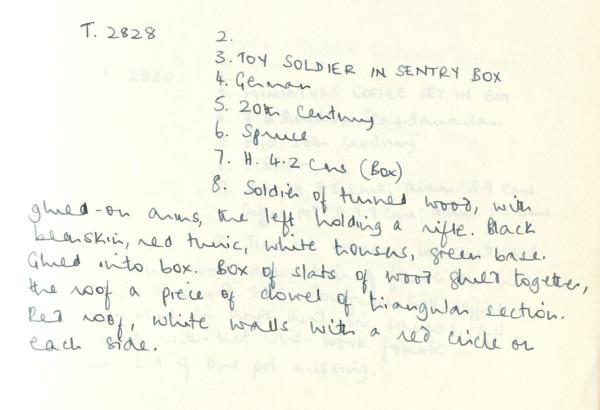 T. 2828 2.
3. TOY SOLDIER IN SENTRY BOX
4. German
5. 20th Century
6. Spruce
7. H. 4.2 cms (Box)
8. Soldier of turned wood, with
glued-on arms, the left holding a rifle. Black
bearskin, red tunic, white trousers, green base.
Glued into box. Box of slats of wood glued together,
the roof a piece of dowel of triangular section.
Red roof, white walls with a red circle on
each side.
T. 2830
MINIATURE COFFEE SET IN BOX
Lid of one pot missing.